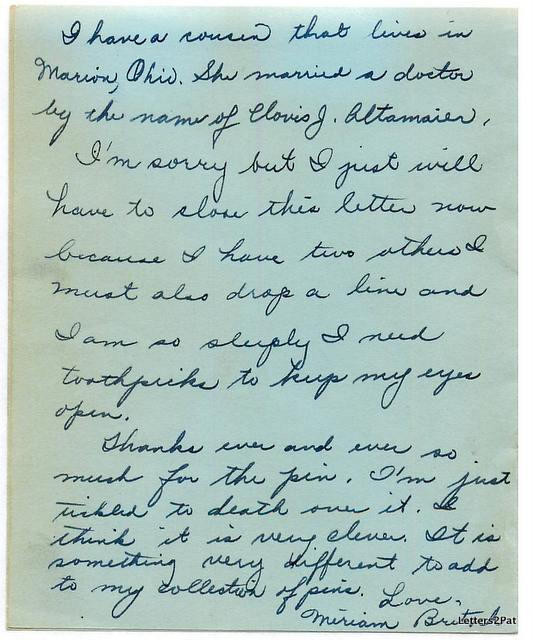 I have a cousin that lives in
Marion, Ohio. She married a doctor
by the name of Clovis J. Altamaier.
I'm sorry but I just will
have to close this letter now
because I have two others I
must also drop a line and
I am so sleeply I need
toothpicks to keep my eyes
open.
Thanks ever and ever so
much for the pin. I'm just
tickled to death over it. I
think it is very clever. It is
something very different to add
to my collection of pins. Love,
Miriam
Letters2Pat